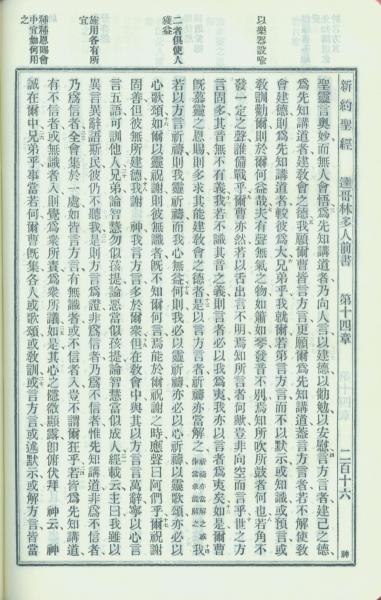 新約聖經 達哥林多人前書 第十四章 二百十六 神
聖靈言奧妙而無人會悟爲先知講道者乃向人言以建德以勸勉以安慰言方言者建己之德
爲先知講道者建敎會之德我願爾曹皆言方言更願爾爲先知講道蓋言方言者若不解使敎
會建德則爲先知講道者較彼爲大兄弟乎我就爾若第言方言而不以默示或知識或預言或
敎訓勸爾則於爾何益哉夫有聲無氣之物如簫如琴發音不別焉知所吹所鼓者何也若角不
發一定之聲誰備戰乎爾曹亦然若以舌出言不明焉知所言者何歟豈非向空而言乎世之方
言固多其音無不有義我若不識其音之義則言者必以我爲夷我亦以言者爲夷矣如是爾曹
旣慕靈之恩賜則多求其能建敎會之德者是以言方言者祈禱亦當解之祈禱亦當解之或作當求能解之我
若以方言祈禱則我靈祈禱而我心無益何則我必以靈祈禱亦必以心祈禱以靈歌頌亦必以
心歌頌如爾以靈祝謝則彼無識者旣不知爾何言焉能於爾祝謝之時應聲曰阿們乎爾祝謝
固善但彼無所建德我謝 神我言方言多於爾衆但在敎會中與其以方言言萬辭寧以心言
言五語可訓他人兄弟論智慧勿似孩提論惡當似孩提論智慧當似成人經載云主曰我雖以
異言異辭語斯民彼仍不聽我是則方言爲證非爲信者乃爲不信者惟先知講道非爲不信者
乃爲信者全會集於一處如皆言方言有無識者或不信者入豈不謂爾狂乎若皆爲先知講道
有不信者或無識者入則覺爲衆所責爲衆所議如是其心之隱微顯露卽俯伏拜 神云 神
誠在爾中兄弟乎事當若何爾曹旣集各人或歌頌或敎訓或言方言或述默示或解方言皆當
以樂器設喩
二者俱使人
獲益
施用各有所
宜
種種恩賜會
中宜如何用
之